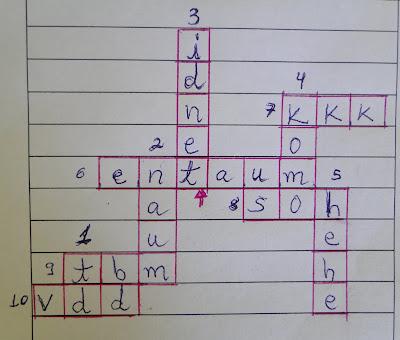 3
i
d 4
n 7 k k k
2 e o
6 e n t a u m 5
a 8 s o h
1 u e
9 t b m h
10 v d d e